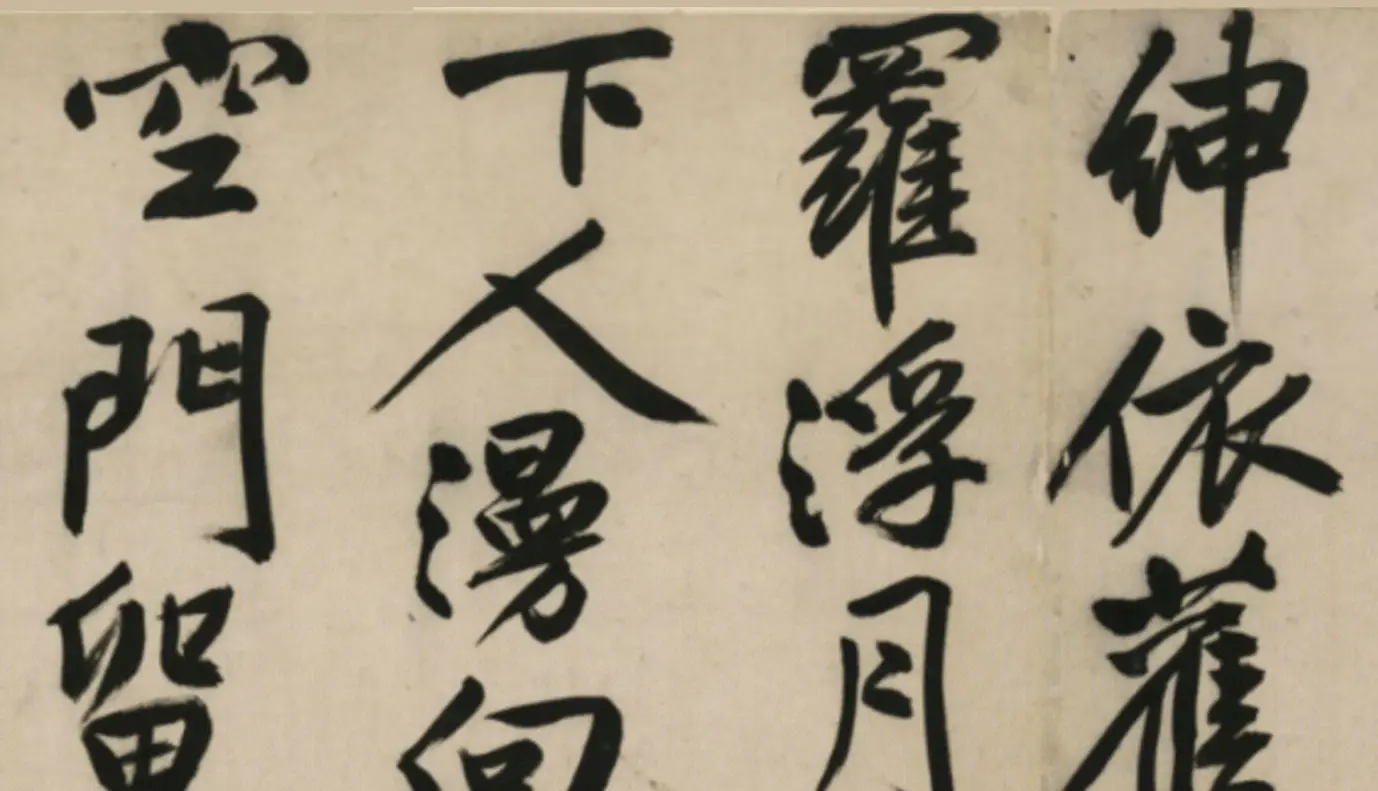 紳依舊
羅浮月
下人漫向
空門留